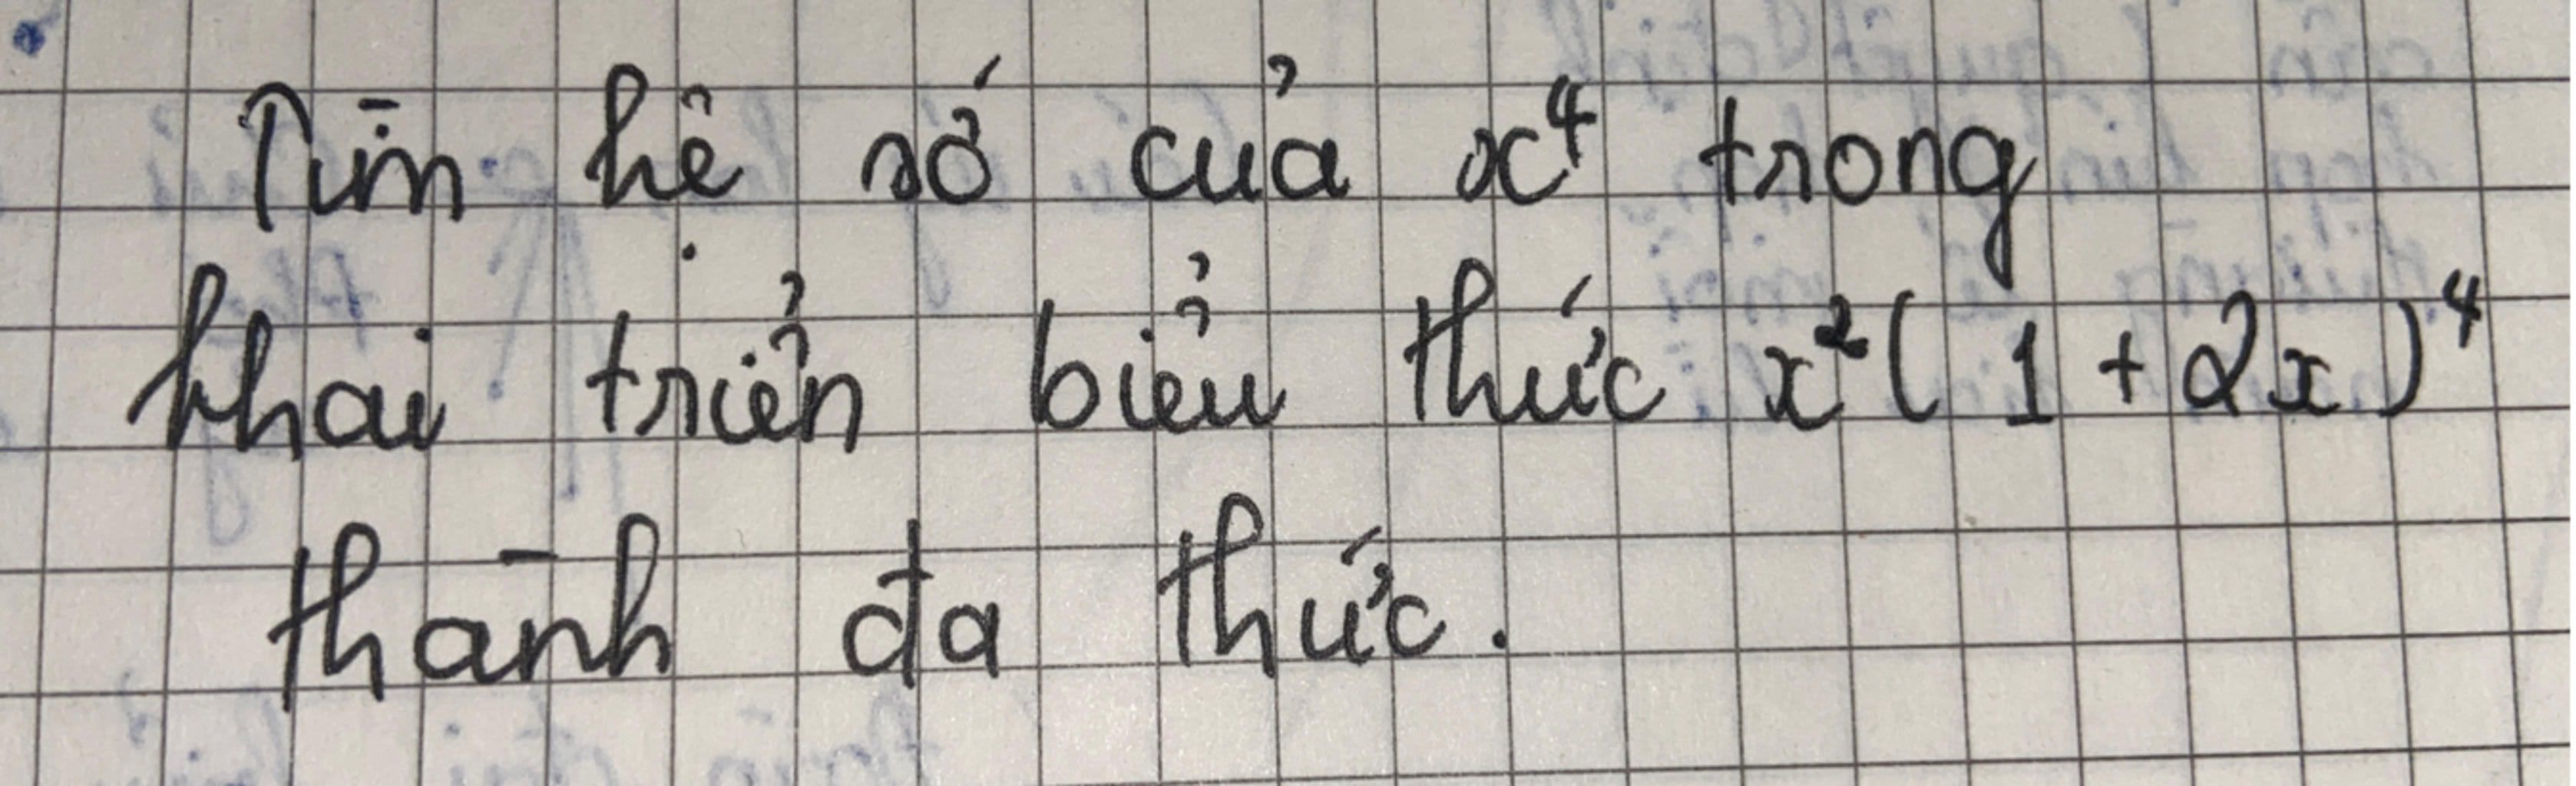 Tìm hệ số của x⁴ trong
khai triển biểu thức x²(1 + 2x)⁴
thành đa thức.